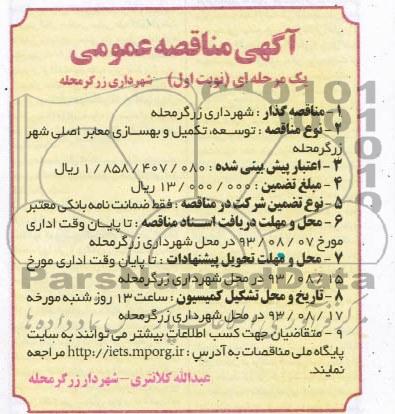 آگهی مناقصه عمومی
یک مرحله ای (نوبت اول) شهرداری زرگرمحله
۱- مناقصه گذار : شهرداری زرگرمحله
۲- نوع مناقصه : توسعه، تکمیل و بهسازی معابر اصلی شهر
زرگرمحله
۳- اعتبار پیش بینی شده : ۱/۸۵۸/۴۰۷/۰۸۰ ریال
۴- مبلغ تضمین : ۱۳/۰۰۰/۰۰۰ ریال
۵- نوع تضمین شرکت در مناقصه : فقط ضمانت نامه بانکی معتبر
۶- محل و مهلت دریافت اسناد مناقصه : تا پایان وقت اداری
مورخ ۹۳/۰۸/۰۷ در محل شهرداری زرگرمحله
۷- محل و مهلت تحویل پیشنهادات : تا پایان وقت اداری مورخ
۹۳/۰۸/۱۵ در محل شهرداری زرگرمحله
۸- تاریخ و محل تشکیل کمیسیون : ساعت ۱۳ روز شنبه مورخه
۹۳/۰۸/۱۷ در محل شهرداری زرگرمحله
۹- متقاضیان جهت کسب اطلاعات بیشتر می توانند به سایت
پایگاه ملی مناقصات به آدرس : http://iets.mporg.ir مراجعه
نمایند.
عبدالله کلانتری - شهردار زرگرمحله
ParsNamadData